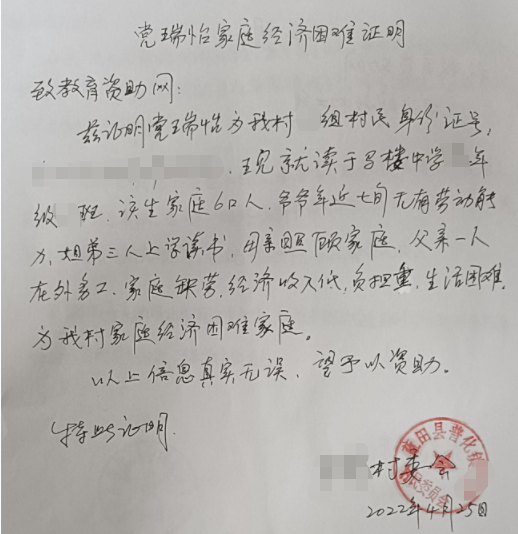 党瑞怡家庭经济困难证明
致教育资助网:
兹证明党瑞怡为我村 组村民身份证号,
,现就读于吕楼中学 年
级 班,该生家庭6口人,爷爷年近七旬无有劳动能
力,姐弟三人上学读书,母亲照顾家庭,父亲一人
在外务工,家庭缺劳,经济收入低,负担重,生活困难,
为我村家庭经济困难家庭。
以上信息真实无误,望予以资助。
特此证明.
蓝田县普化镇
村委会
民委员会
2022年4月25日